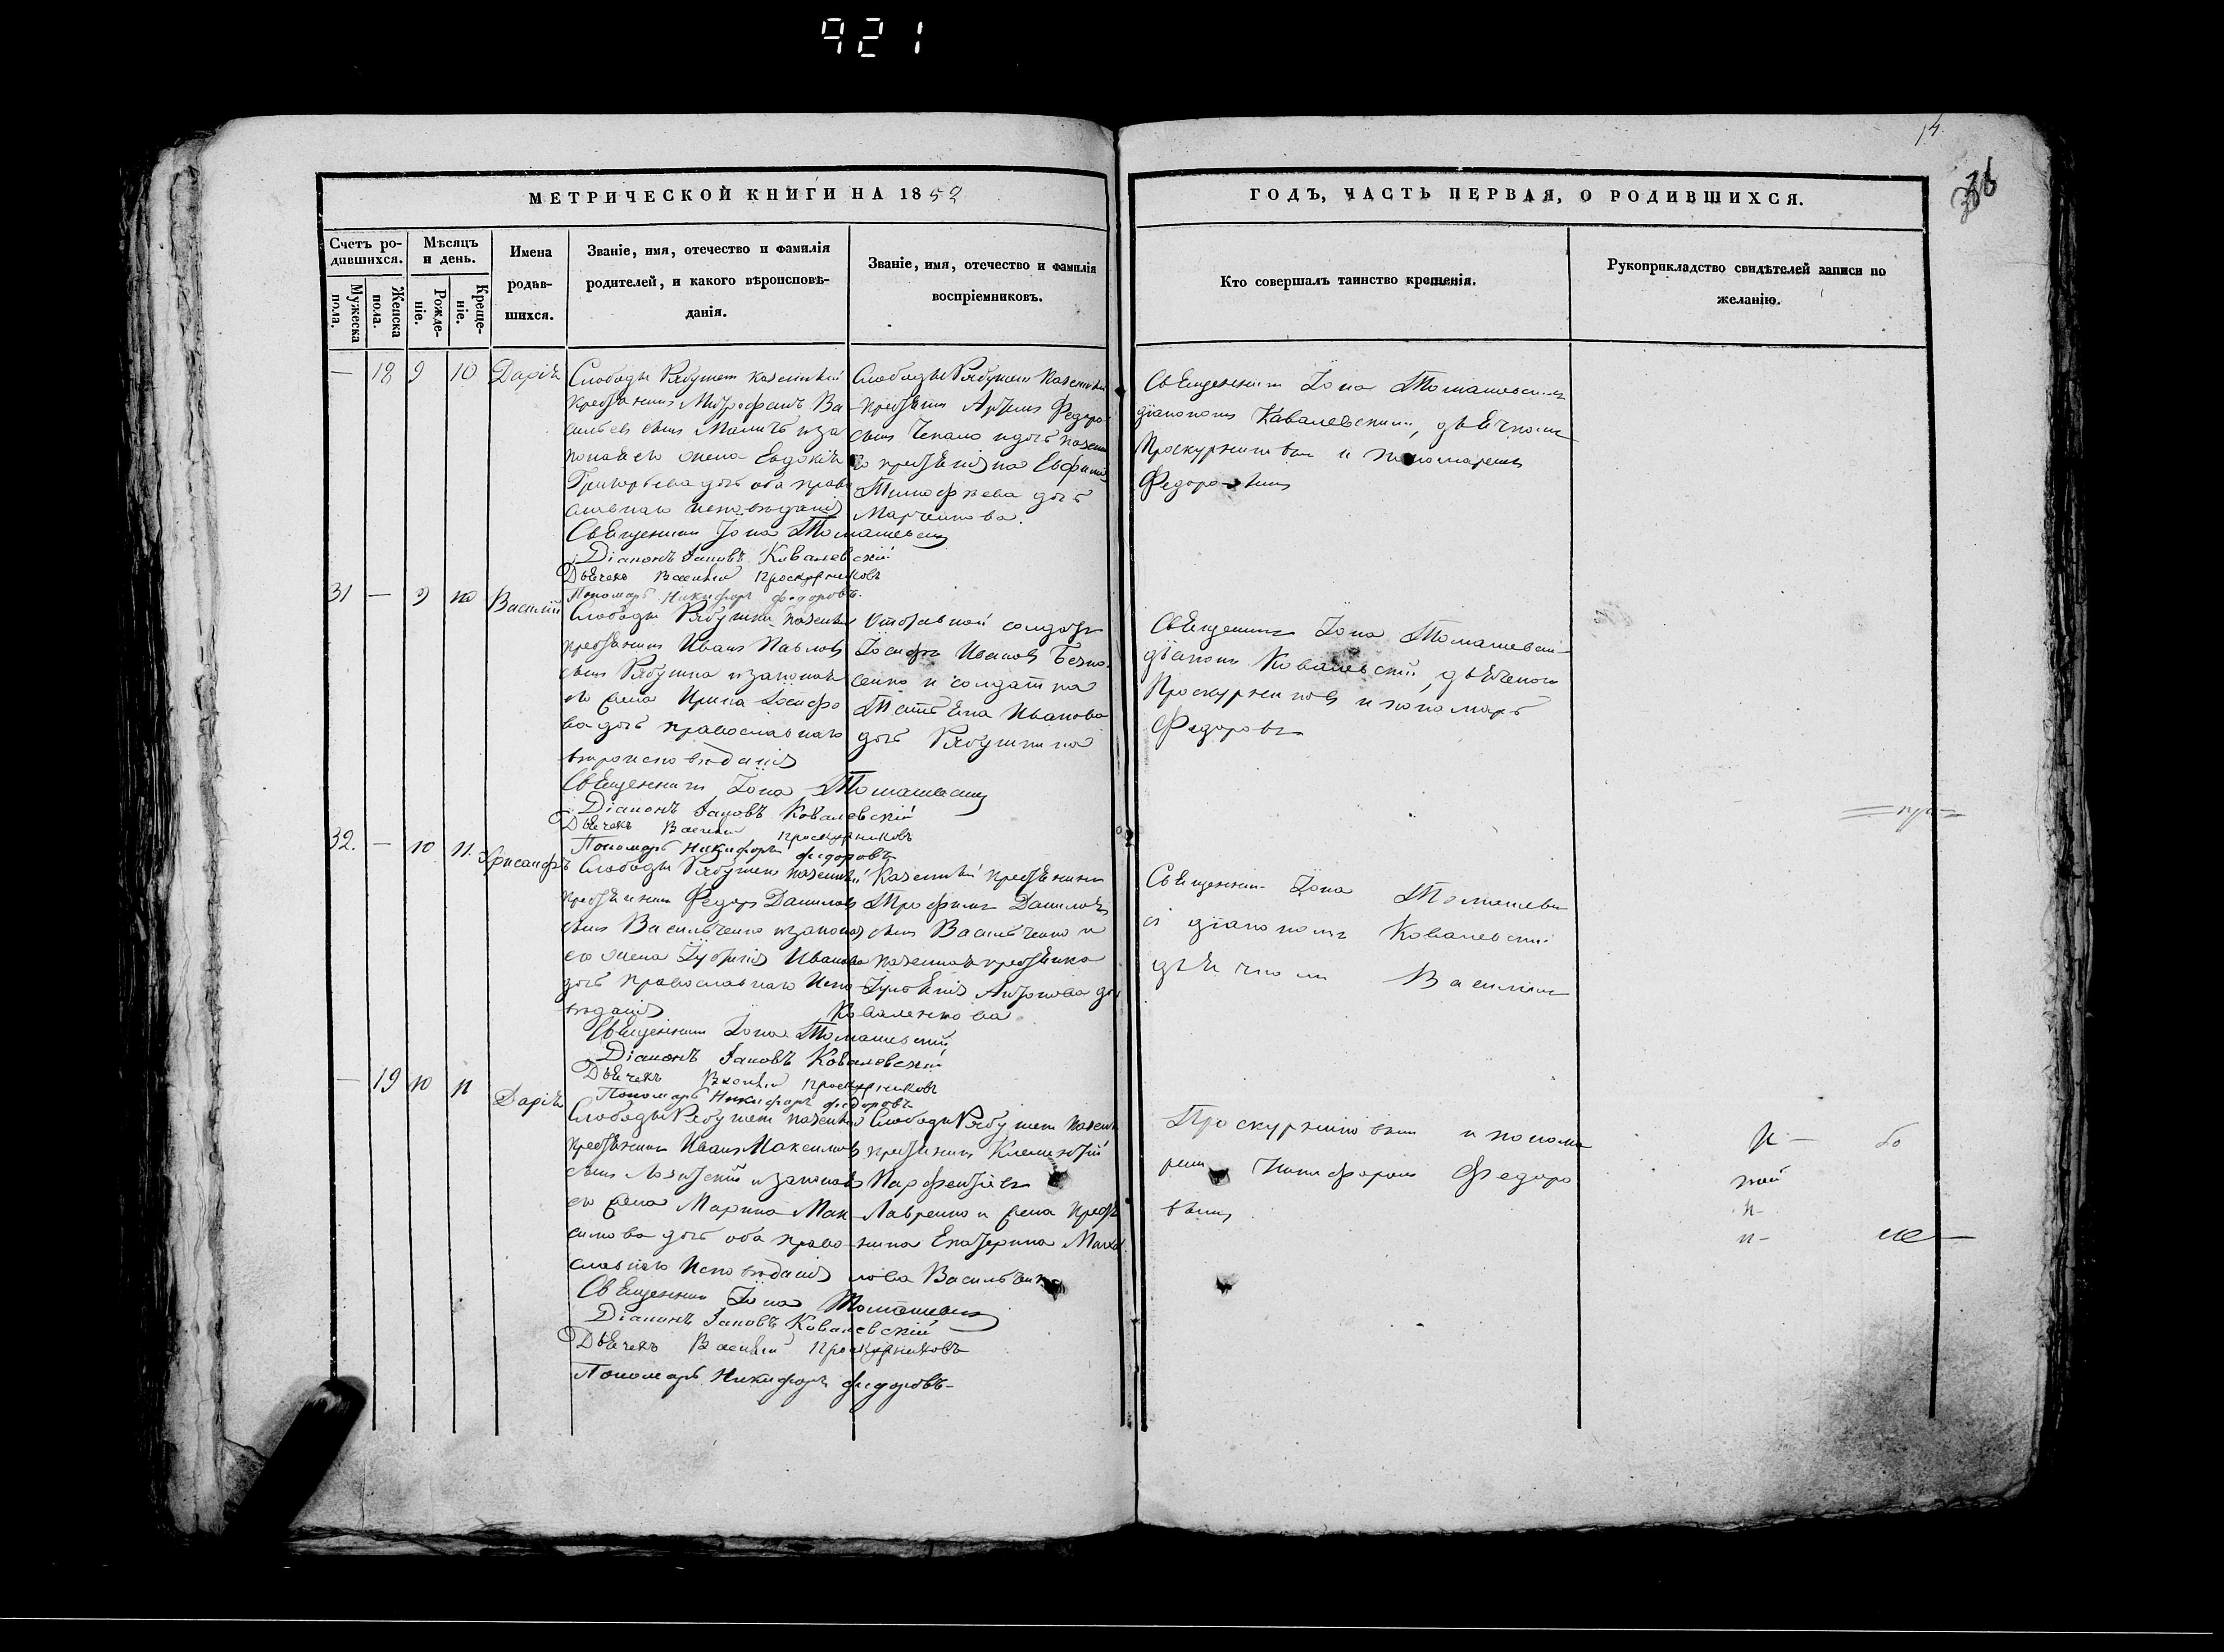 921
14.
36
МЕТРИЧЕСКОЙ КНИГИ НА 1852
ГОДЪ, ЧАСТЬ ПЕРВАЯ, О РОДИВШИХСЯ.
Счетъ ро-
дившихся.
Мужеска
пола.
Женска
пола.
Мѣсяцъ
и день.
Рожде-
ніе.
Креще-
ніе.
Имена
родив-
шихся.
Званіе, имя, отечество и фамилія
родителей, и какого вѣроисповѣ-
данія.
Званіе, имя, отечество и фамилія
воспріемниковъ.
Кто совершалъ таинство крещенія.
Рукоприкладство свидѣтелей записи по
желанію.
— 18 9 10 Дарія
Слободы Рябушки казенный
крестьянинъ Митрофанъ Ва
сильевъ сынъ и за
жена Евдокія
Григорьева дочь оба право
славнаго исповѣданія
Священникъ Іона Томашевскій
Діаконъ Іаковъ Ковалевскій
Дьячекъ Василій Проскурниковъ
Пономарь Никифоръ Федоровъ
Слободы Рябушки казенный
крестьянинъ Федоро
сынъ
Тимофеева дочь
Марченкова.
Священникъ Іона Томашевскій
діакономъ Кавалевскимъ, дьячкомъ
Проскурниковымъ и пономаремъ
Федоровымъ
31 — 9 10 Василій
Слободы Рябушки казенный
крестьянинъ Иванъ Павловъ
сынъ Рябушка и законная
его жена Ирина Іосифо
ва дочь православнаго
вѣроисповѣданія
Священникъ Іона Томашевскій
Діаконъ Іаковъ Ковалевскій
Дьячекъ Василій Проскурниковъ
Пономарь Никифоръ Федоровъ
Отставной солдатъ
Іосифъ Ивановъ
и солдатка
Татьяна Иванова
дочь Рябушкина
Священникъ Іона Томашевскій
діаконъ Ковалевскій, дьячекъ
Проскурниковъ и пономарь
Федоровъ
32. — 10 11. Хрисанфъ
Слободы Рябушки казенный
крестьянинъ Федоръ Даниловъ
сынъ Васильченко и законная
его жена Иванова
дочь православнаго испо
вѣданія
Священникъ Іона Томашевскій
Діаконъ Іаковъ Ковалевскій
Дьячекъ Василій Проскурниковъ
Пономарь Никифоръ Федоровъ
Казенный крестьянинъ
Трофимъ Даниловъ
сынъ Васильченко и
казенная крестьянка
Антонова дочь
Коваленкова
Священник Іона Томашевск
ій діакономъ Ковалевскій
дьячкомъ Василіемъ
— 19 10 11 Дарія
Слободы Рябушки казенный
крестьянинъ Иванъ Максимовъ
сынъ и законная
его жена Марина Мак
симова дочь оба право
славнаго исповѣданія
Священникъ Іона Томашевскій
Діаконъ Іаковъ Ковалевскій
Дьячекъ Василій Проскурниковъ
Пономарь Никифоръ Федоровъ
Слободы Рябушки казенный
крестьянинъ Климентій
Парфентіевъ
Лавренко и жена крестья
нина Екатерина Михай
лова Васильченко
Проскурниковымъ и понома
ремъ Никифоромъ Федоро
вымъ